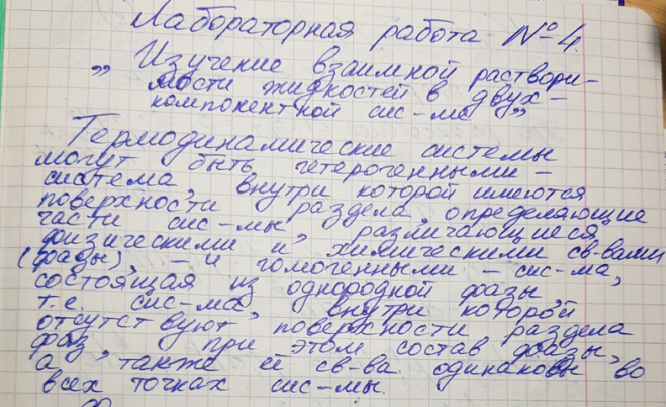 Лабораторная работа №4.
„Изучение взаимной раствори-
мости жидкостей в двух-
компонентной сис-ме„
Термодинамические системы
могут быть гетерогенными –
система, внутри которой имеются
поверхности раздела, определяющие
части сис-мы, различающиеся
физическими и химическими св-вами
(фазы), – и гомогенными – сис-ма,
состоящая из однородной фазы,
т.е. сис-ма, внутри которой
отсутствуют поверхности раздела
фаз, при этом состав фазы,
а также её св-ва одинаковы во
всех точках сис-мы.